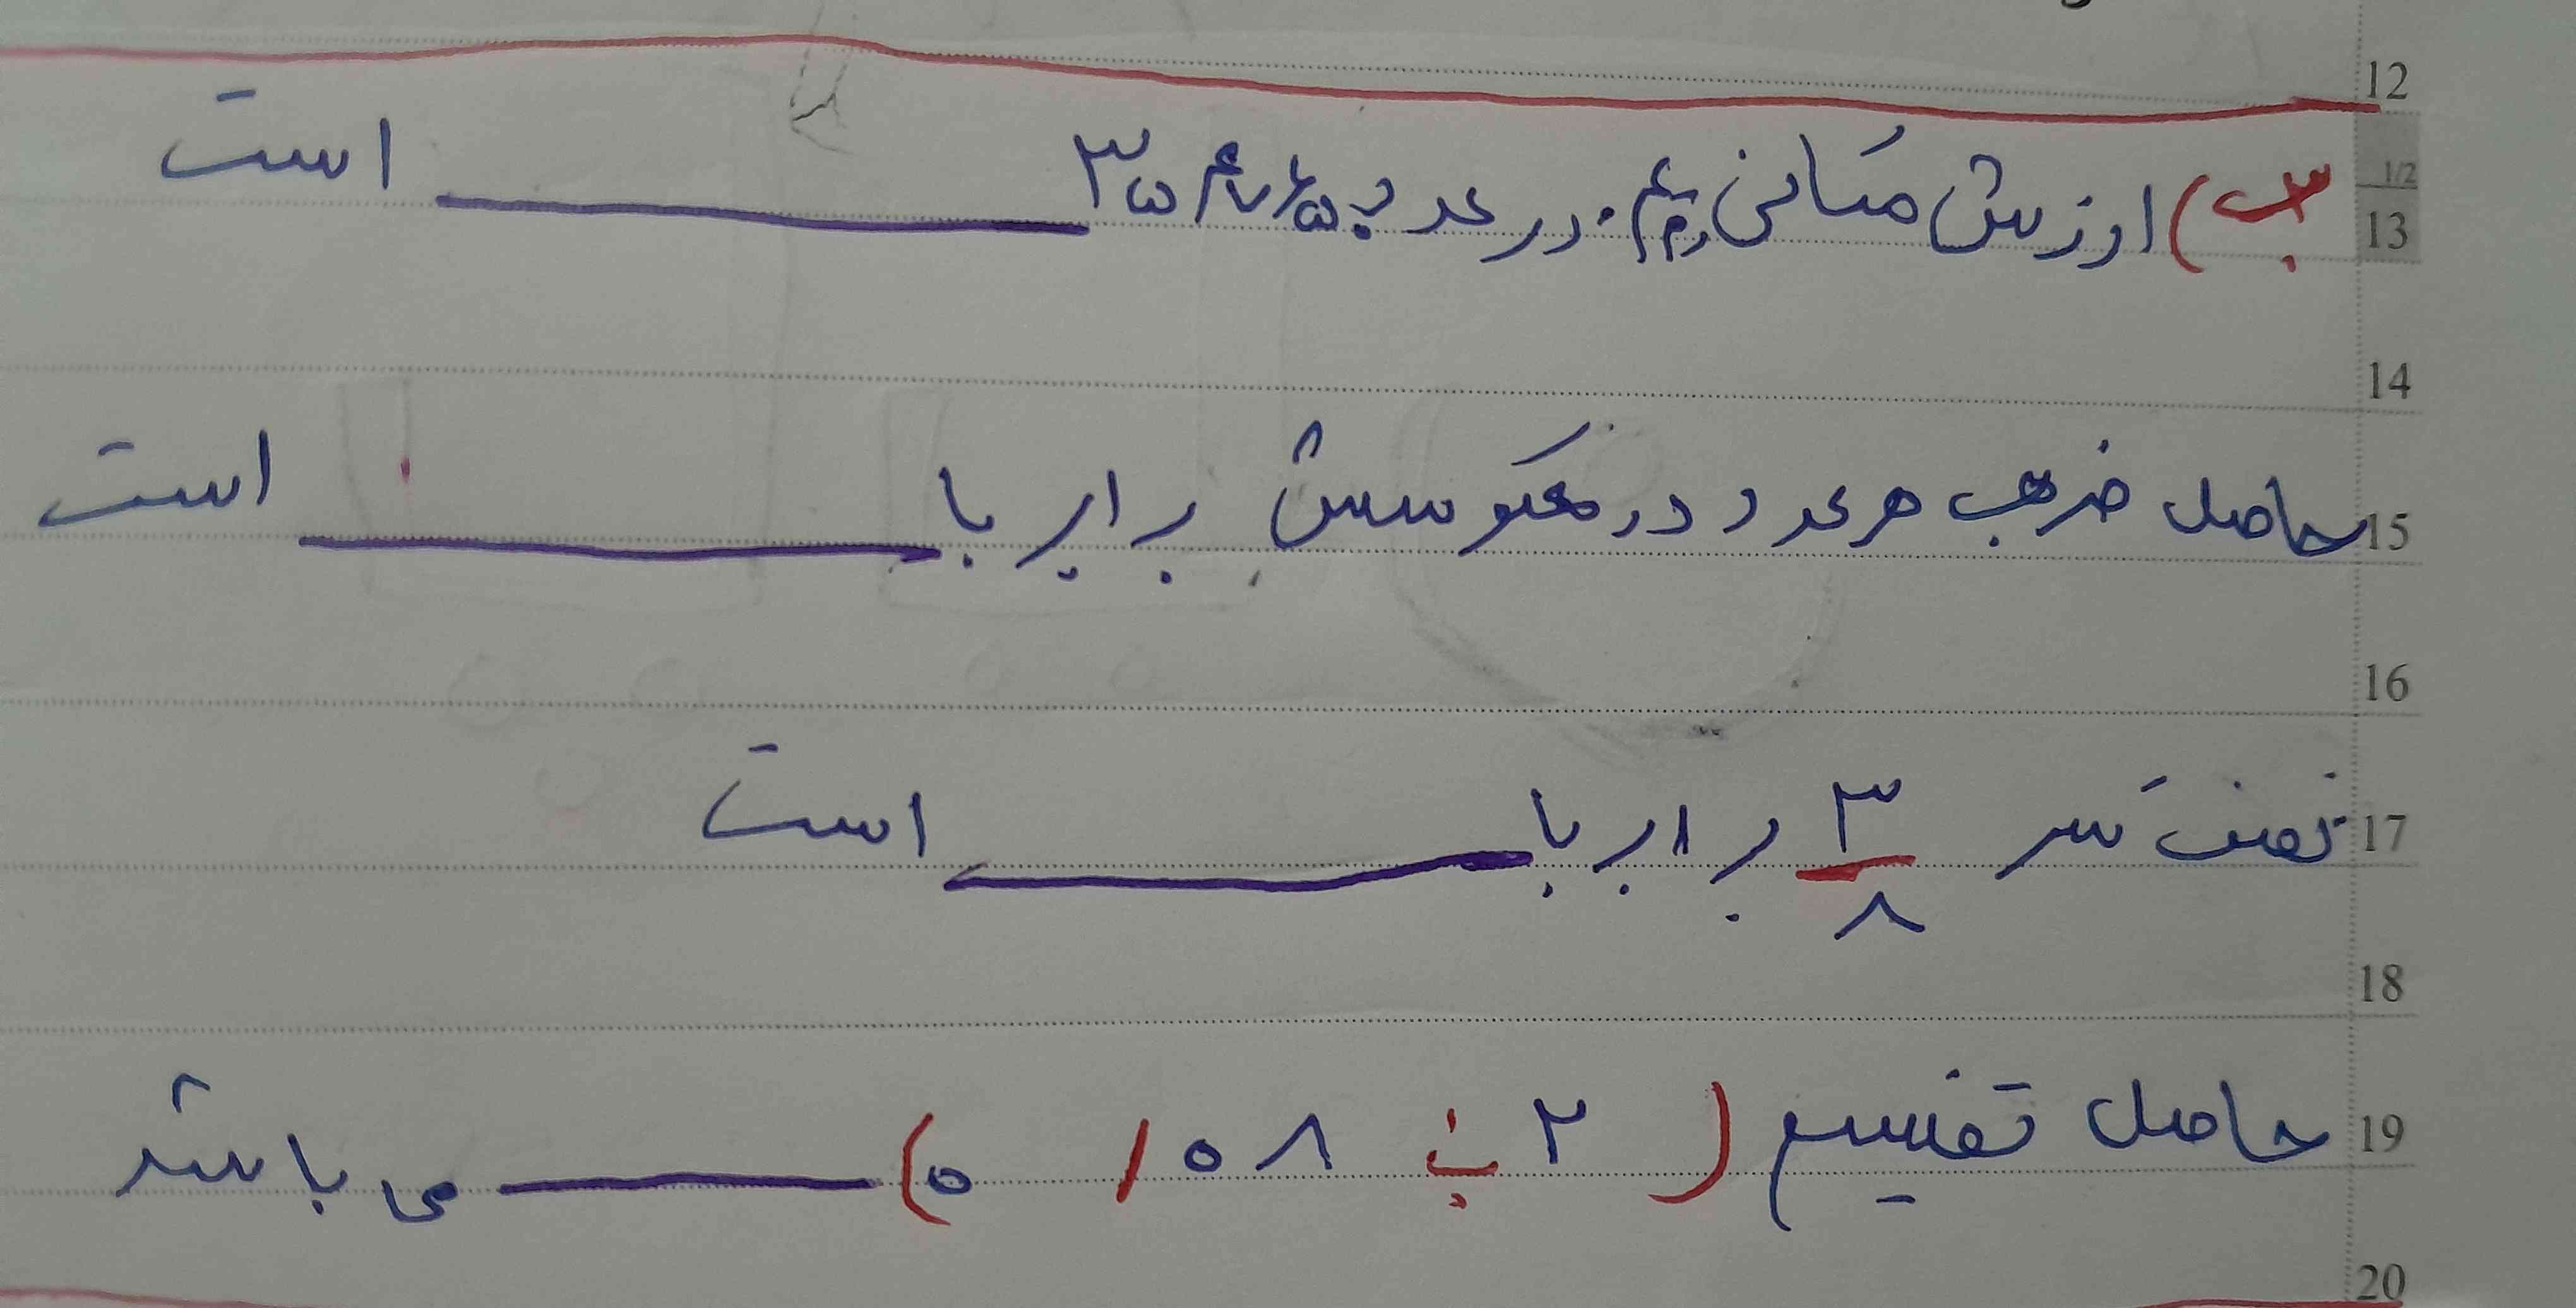 12
ب) ارزش مکانی رقم ۴ در عدد
است
1/2
13
14
15 حاصل ضرب هر عدد در معکوسش برابر با ______ است
16
17 نصف کسر ۳/۸ برابر با ______ است
18
19 حاصل تقسیم (۲ ÷ ۸ ۰ / ۰) ______ می باشد
20